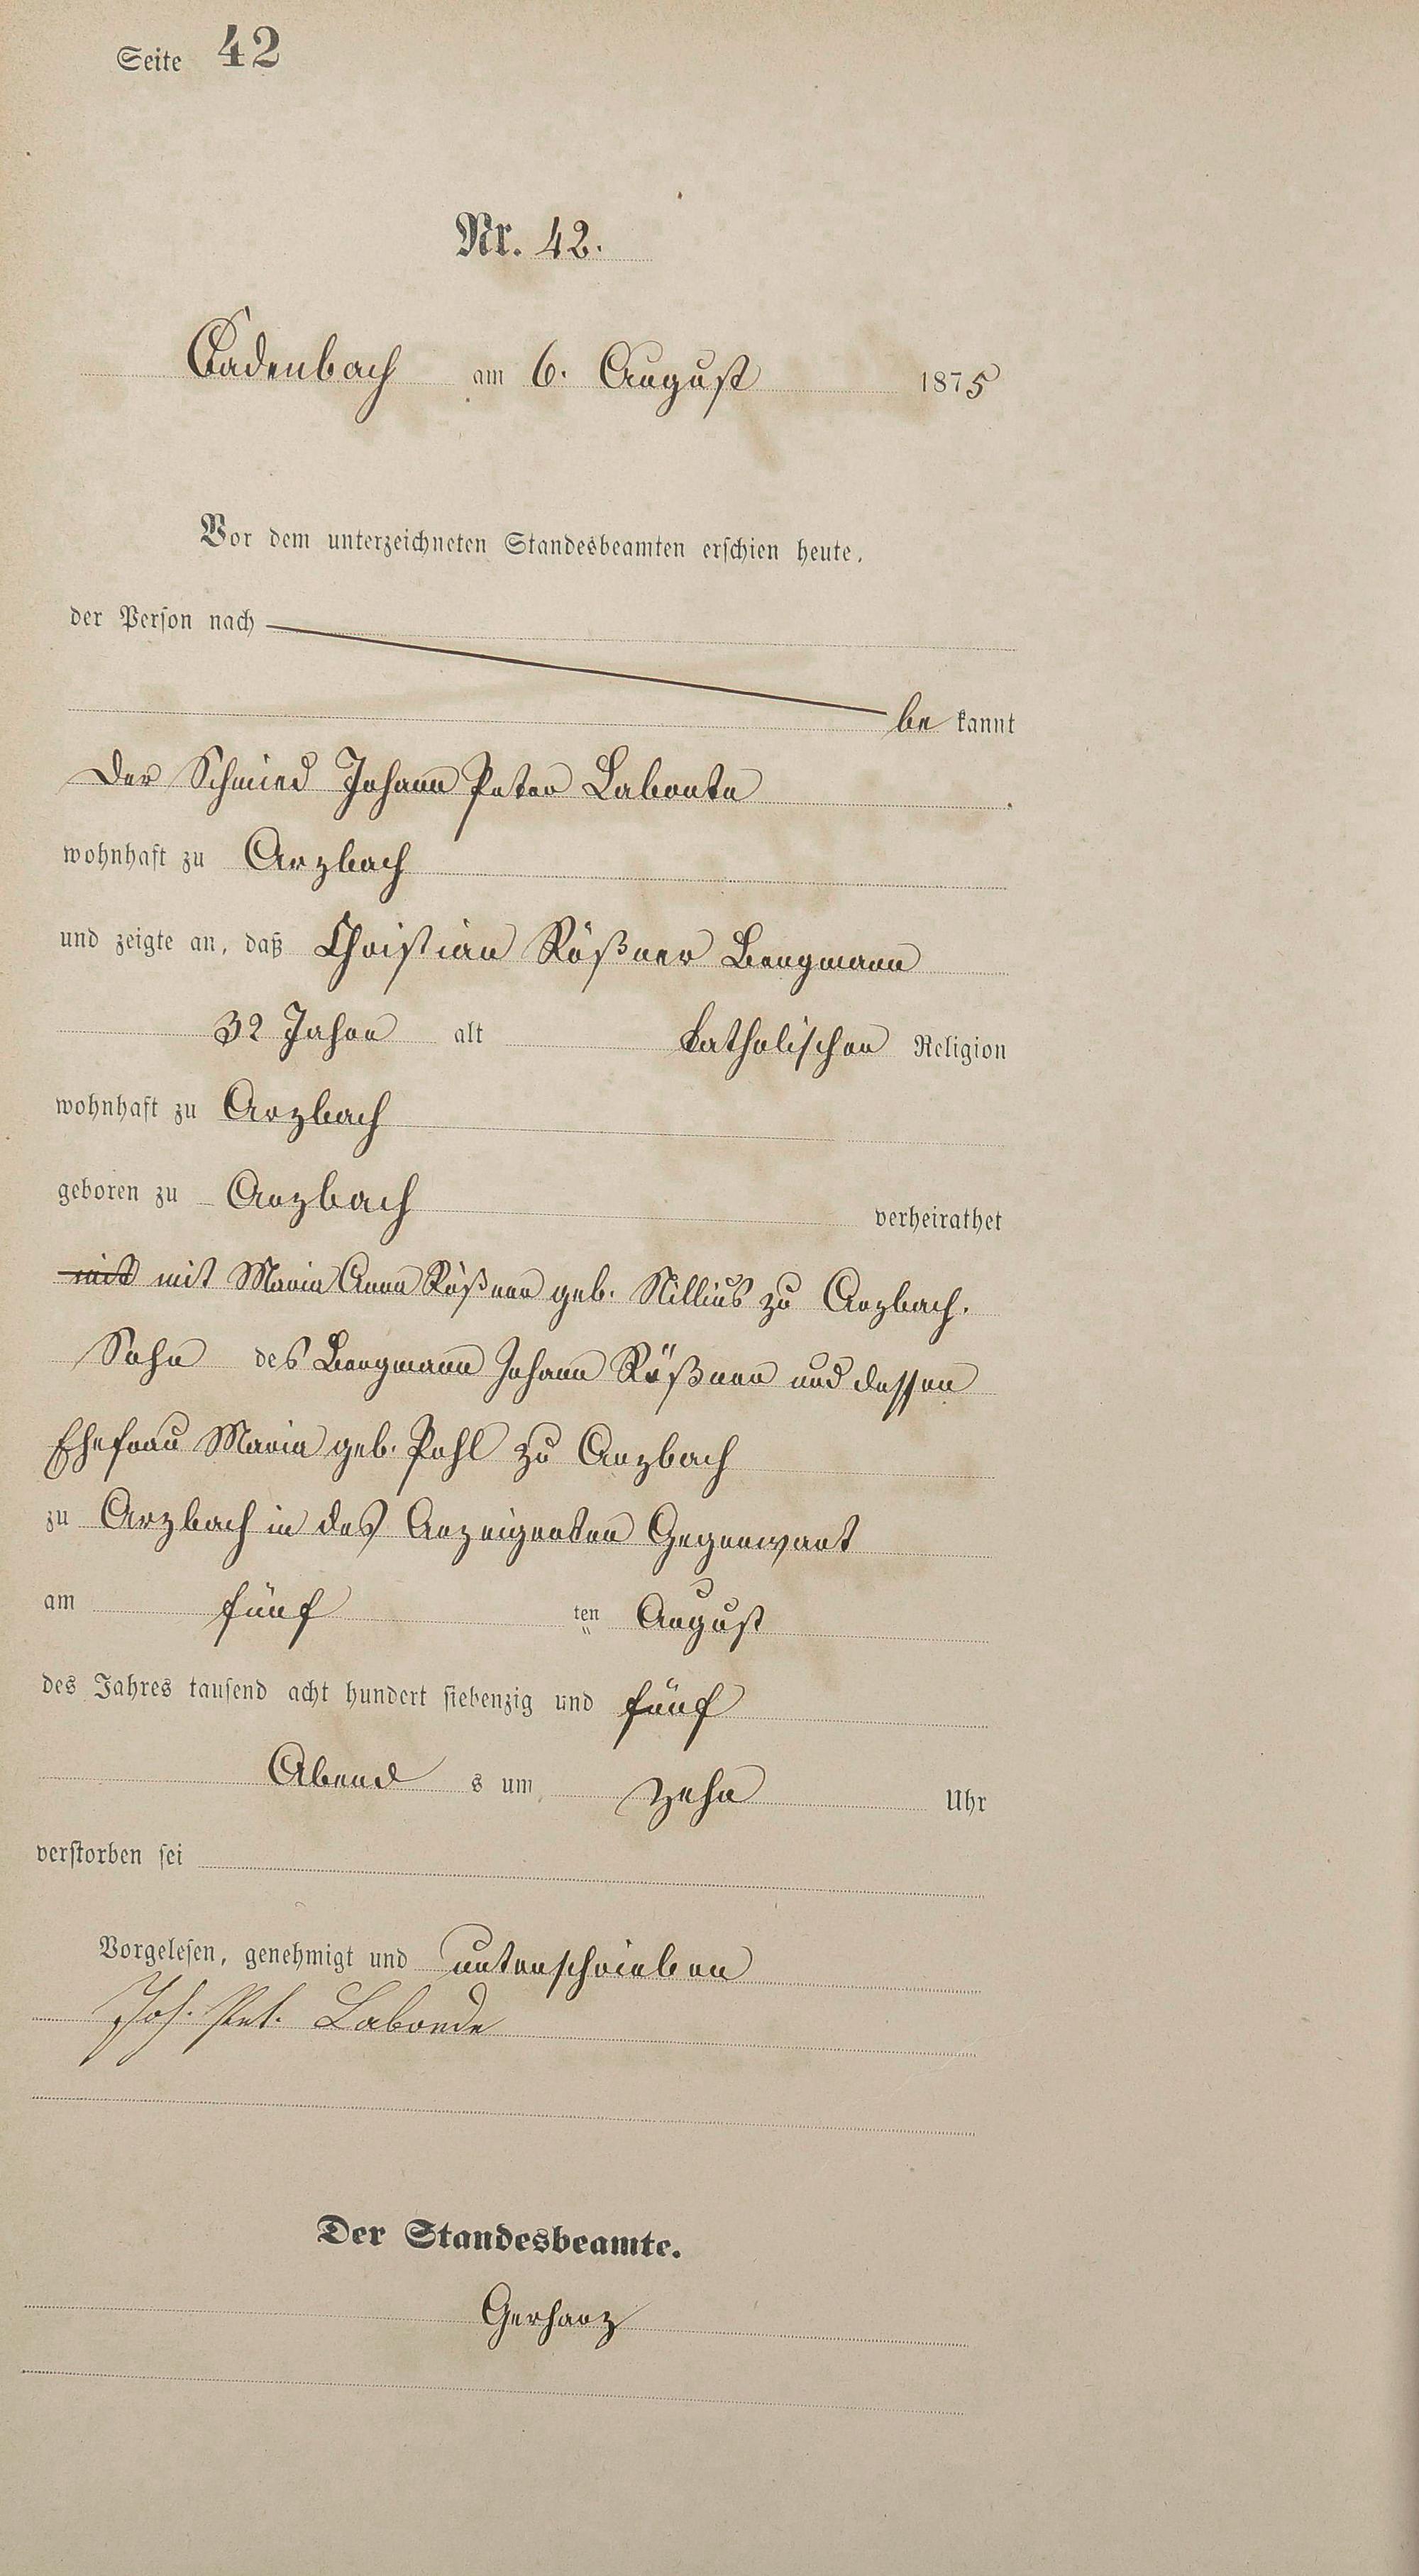 Seite 42
Nr. 42.
Cadenbach am 6. August 1875
Vor dem unterzeichneten Standesbeamten erschien heute,
der Person nach
be kannt
der Schmied Johann Peter Labonte
wohnhaft zu Arzbach
und zeigte an, daß Christian Rößner Bergmann
32 Jahre alt katholischen Religion
wohnhaft zu Arzbach
geboren zu Arzbach verheirathet
mit mit Maria Anna Rößner geb. Nillius zu Arzbach.
Sohn des Bergmann Johann Rößner und dessen
Ehefrau Maria geb. Pohl zu Arzbach
zu Arzbach in des Anzeigenden Gegenwart
am fünf ten August
des Jahres tausend acht hundert siebenzig und fünf
Abend s um zehn Uhr
verstorben sei
Vorgelesen, genehmigt und unterschrieben
Joh. Pet. Labonde
Der Standesbeamte.
Gerharz